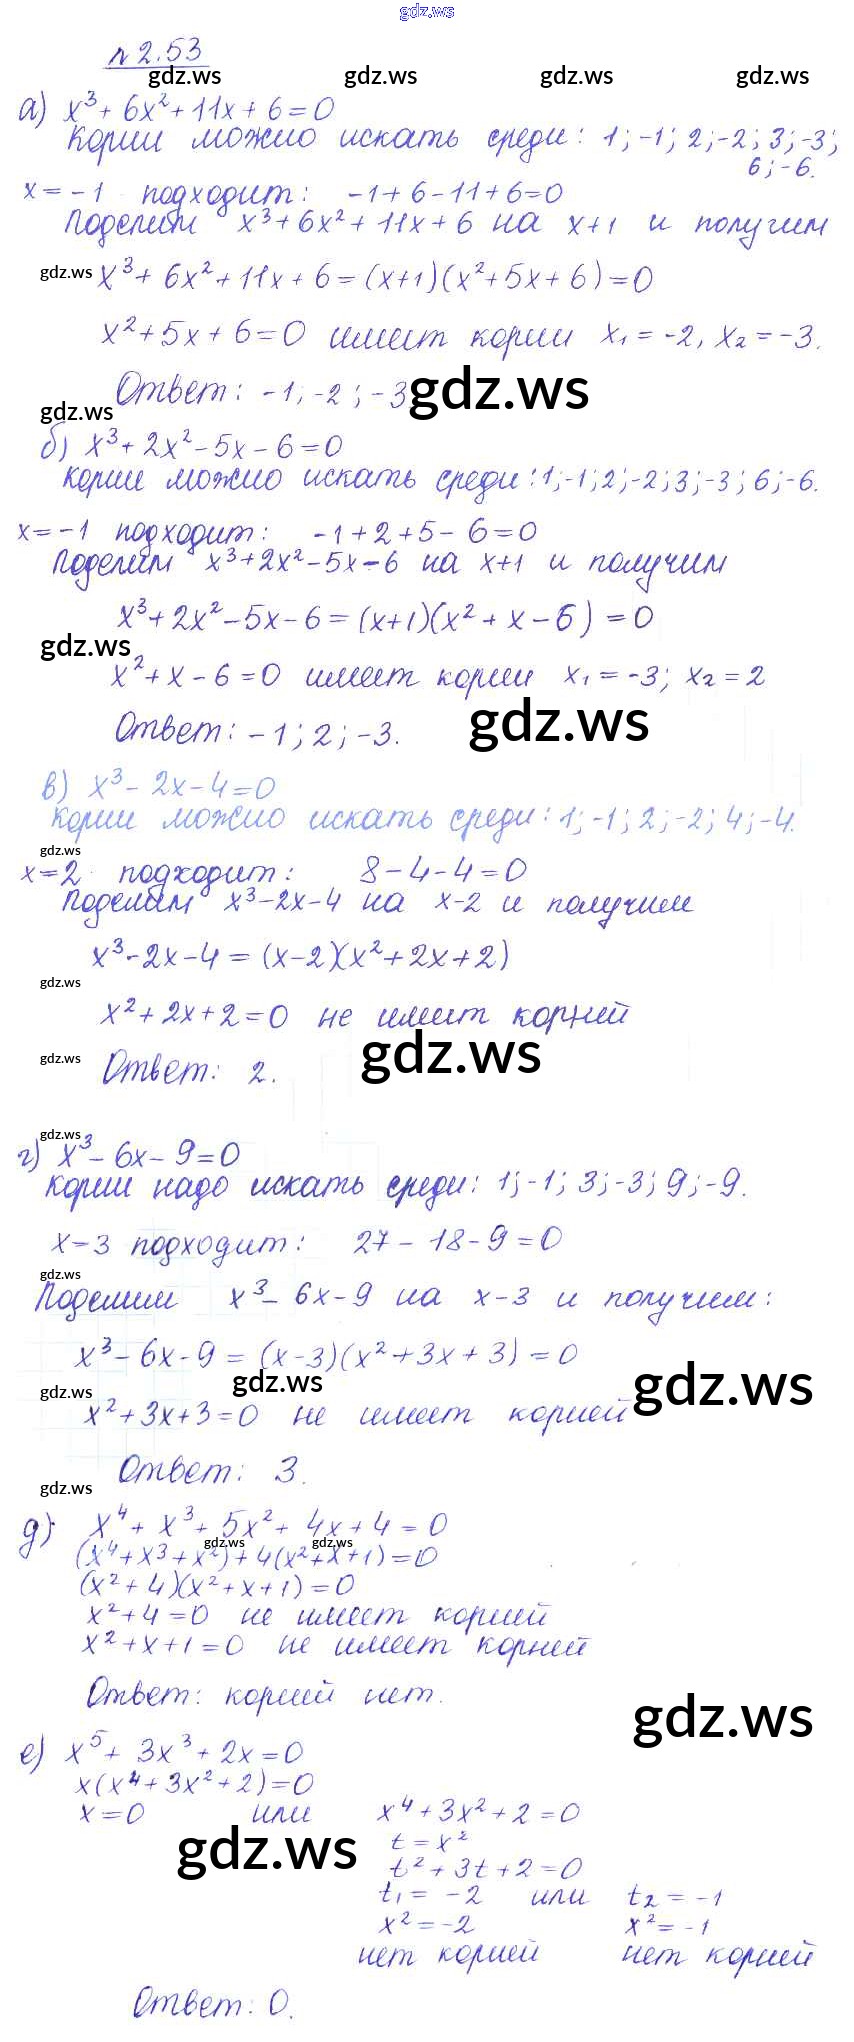 gdz.ws
№ 2.53
gdz.ws gdz.ws gdz.ws gdz.ws
а) x³ + 6x² + 11x + 6 = 0
Корни можно искать среди: 1; -1; 2; -2; 3; -3;
6; -6.
x = -1 подходит: -1 + 6 - 11 + 6 = 0
Поделим x³ + 6x² + 11x + 6 на x+1 и получим
gdz.ws x³ + 6x² + 11x + 6 = (x+1)(x² + 5x + 6) = 0
x² + 5x + 6 = 0 имеет корни x₁ = -2, x₂ = -3.
Ответ: -1; -2; -3 gdz.ws
gdz.ws
б) x³ + 2x² - 5x - 6 = 0
Корни можно искать среди: 1; -1; 2; -2; 3; -3; 6; -6.
x = -1 подходит: -1 + 2 + 5 - 6 = 0
Поделим x³ + 2x² - 5x - 6 на x+1 и получим
x³ + 2x² - 5x - 6 = (x+1)(x² + x - 6) = 0
gdz.ws
x² + x - 6 = 0 имеет корни x₁ = -3; x₂ = 2
Ответ: -1; 2; -3. gdz.ws
в) x³ - 2x - 4 = 0
Корни можно искать среди: 1; -1; 2; -2; 4; -4.
gdz.ws
x = 2 подходит: 8 - 4 - 4 = 0
Поделим x³ - 2x - 4 на x-2 и получим
x³ - 2x - 4 = (x-2)(x² + 2x + 2)
gdz.ws
x² + 2x + 2 = 0 не имеет корней
gdz.ws Ответ: 2. gdz.ws
gdz.ws
г) x³ - 6x - 9 = 0
Корни надо искать среди: 1; -1; 3; -3; 9; -9.
x = 3 подходит: 27 - 18 - 9 = 0
gdz.ws
Поделим x³ - 6x - 9 на x-3 и получим:
x³ - 6x - 9 = (x-3)(x² + 3x + 3) = 0
gdz.ws gdz.ws gdz.ws
x² + 3x + 3 = 0 не имеет корней
Ответ: 3.
gdz.ws
д) x⁴ + x³ + 5x² + 4x + 4 = 0
gdz.ws gdz.ws
(x⁴ + x³ + x²) + 4(x² + x + 1) = 0
(x² + 4)(x² + x + 1) = 0
x² + 4 = 0 не имеет корней
x² + x + 1 = 0 не имеет корней
Ответ: корней нет.
gdz.ws
е) x⁵ + 3x³ + 2x = 0
x(x⁴ + 3x² + 2) = 0
x = 0 или x⁴ + 3x² + 2 = 0
gdz.ws t = x²
t² + 3t + 2 = 0
t₁ = -2 или t₂ = -1
x² = -2 x² = -1
нет корней нет корней
Ответ: 0.